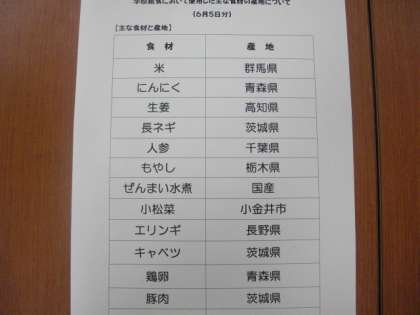 学校給食において使用した主な食材の産地について
(6月5日分)
【主な食材と産地】
食 材 産 地
米 群馬県
にんにく 青森県
生姜 高知県
長ネギ 茨城県
人参 千葉県
もやし 栃木県
ぜんまい水煮 国産
小松菜 小金井市
エリンギ 長野県
キャベツ 茨城県
鶏卵 青森県
豚肉 茨城県